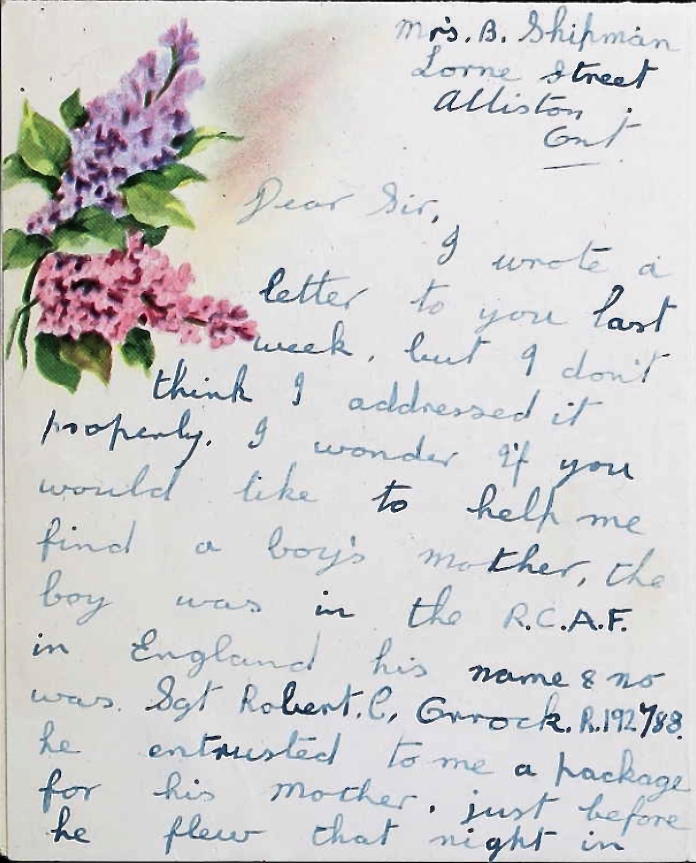 Mrs. B. Shipman
Lorne Street
Alliston
Ont
Dear Sir,
I wrote a
letter to you last
week, but I don't
think I addressed it
properly. I wonder if you
would like to help me
find a boy's mother, the
boy was in the R.C.A.F.
in England his name & no
was. Sgt Robert. C, Orrock. R.192788.
he entrusted to me a package
for his mother, just before
he flew that night in